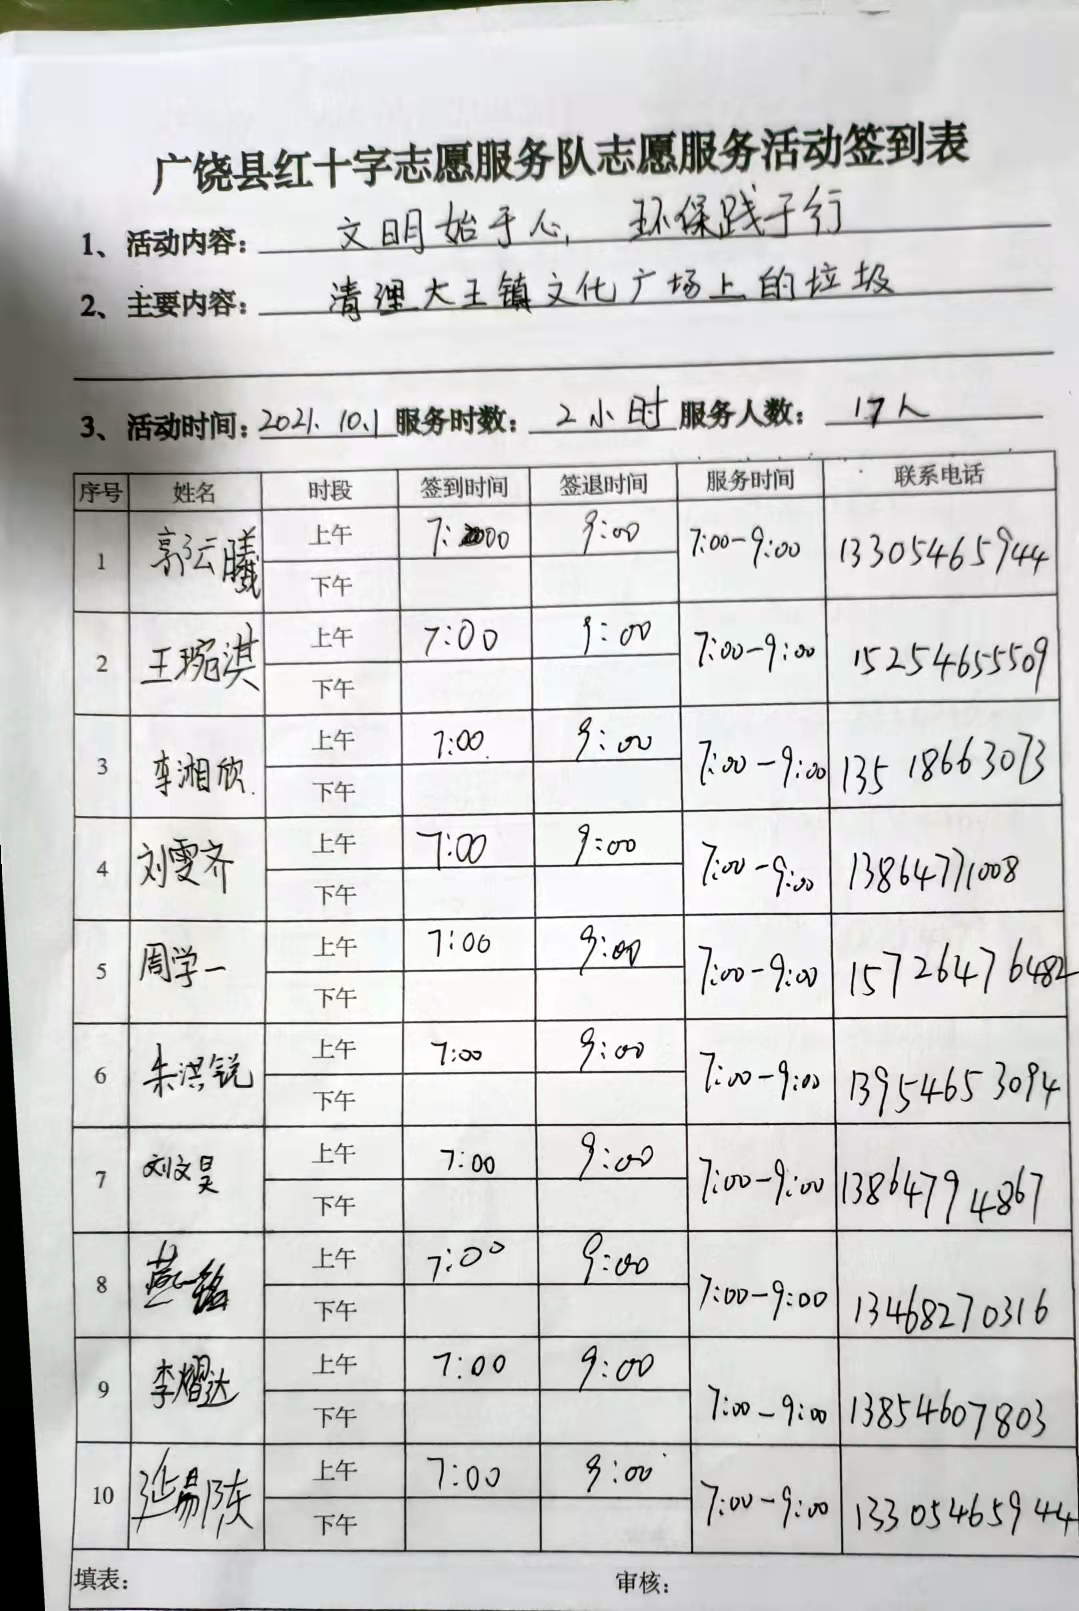 广饶县红十字志愿服务队志愿服务活动签到表
1、活动内容：文明始于心，环保践于行
2、主要内容：清理大王镇文化广场上的垃圾
3、活动时间：2021.10.1 服务时数：2小时 服务人数：17人
序号 姓名 时段 签到时间 签退时间 服务时间 联系电话
1 郭云曦 上午 7:00 9:00 7:00-9:00 13305465944
下午
2 王琬淇 上午 7:00 9:00 7:00-9:00 15254655509
下午
3 李湘欣 上午 7:00 9:00 7:00-9:00 13518663073
下午
4 刘雯齐 上午 7:00 9:00 7:00-9:00 13864771008
下午
5 周学一 上午 7:00 9:00 7:00-9:00 15726476482
下午
6 朱洪锐 上午 7:00 9:00 7:00-9:00 13954653094
下午
7 刘文昊 上午 7:00 9:00 7:00-9:00 13864794867
下午
8 上午 7:00 9:00 7:00-9:00 13468270316
下午
9 李熠达 上午 7:00 9:00 7:00-9:00 13854607803
下午
10 上午 7:00 9:00 7:00-9:00 13305465944
下午
填表： 审核：